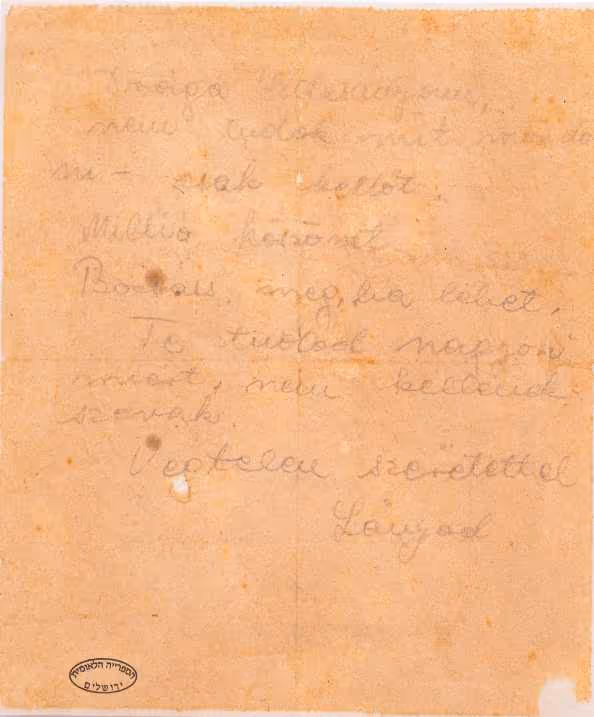 Drága Édesanyám,
nem tudok mit monda
ni – csak kettőt.
Millió köszönet
Bocsáss meg, ha lehet.
Te tudod nagyon
miért, nem kellenek
szavak.
Végtelen szeretettel
Lányod
הספרייה הלאומית
ירושלים